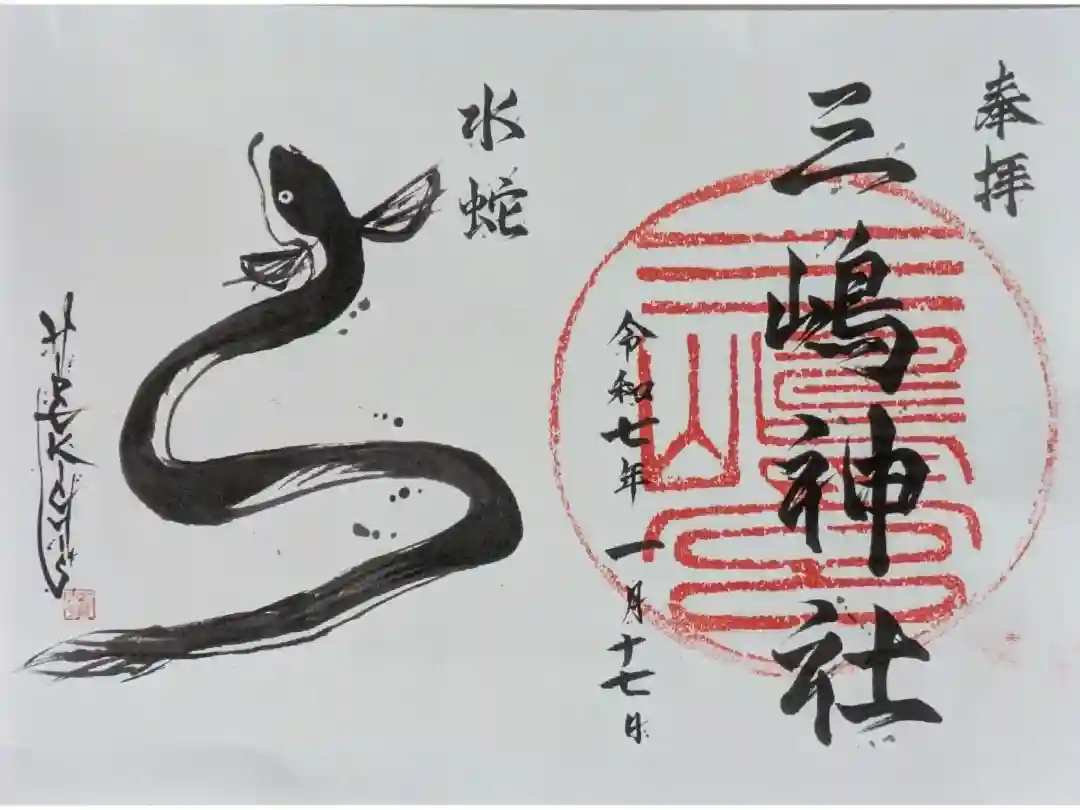 奉拝
三嶋神社
令和七年 一月十七日
水蛇